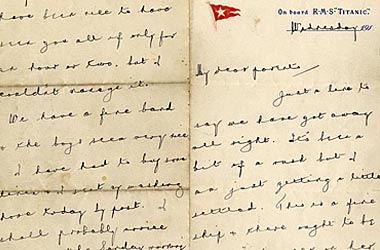 On board R·M·S "TITANIC".
Wednesday 191
My dear parents,
Just a line to
say we have got away
all right. It's been a
bit of a rush but I
am just getting a little
settled. This is a fine
ship & ought to be
have been nice to have
seen you all if only for
an hour or two, but I
couldn't manage it.
We have a fine band
& the boys seem very nice
I have had to buy some
linen & I sent my washing
home today by post. I
shall probably arrive
the Sunday morning